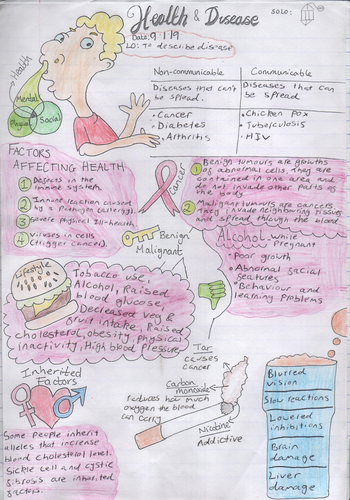 Health & Disease
SOLO:
Date: 9/1/19
LO: To describe disease
Health
Mental
Physical
Social
Non-communicable
Communicable
Diseases that can't
be spread.
Diseases that can
be spread
• Cancer
• Diabetes
• Arthritis
• Chicken pox
• Tuberculosis
• HIV
FACTORS
AFFECTING HEALTH
1 Defects in the
immune system.
2 Immune reaction caused
by a Pathogen (allergy).
3 Severe physical ill-health
4 Viruses in cells
(trigger cancer).
Cancer
1 Benign tumours are growths
of abnormal cells, they are
contained in one area and
do not invade other parts of
the body
2 Malignant tumours are cancers
They invade neighboring tissues
and spread through the blood
Benign
Malignant
Alcohol while
Pregnant
• Poor growth
• Abnormal facial
features
• Behaviour and
learning problems
Lifestyle
Tobacco use,
Alcohol, Raised
blood glucose,
Decreased veg &
fruit intake, Raised
cholesterol, obesity, physical
inactivity, High blood Pressure
Tar
causes
cancer
Carbon
monoxide
reduces how much
oxygen the blood
can carry
Nicotine
Addictive
Inherited
Factors
Some people inherit
alleles that increase
blood cholesterol level.
Sickle cell and cystic
fibrosis are inherited
factors.
Blurred
vision
Slow reactions
Lowered
inhibitions
Brain
damage
Liver
damage